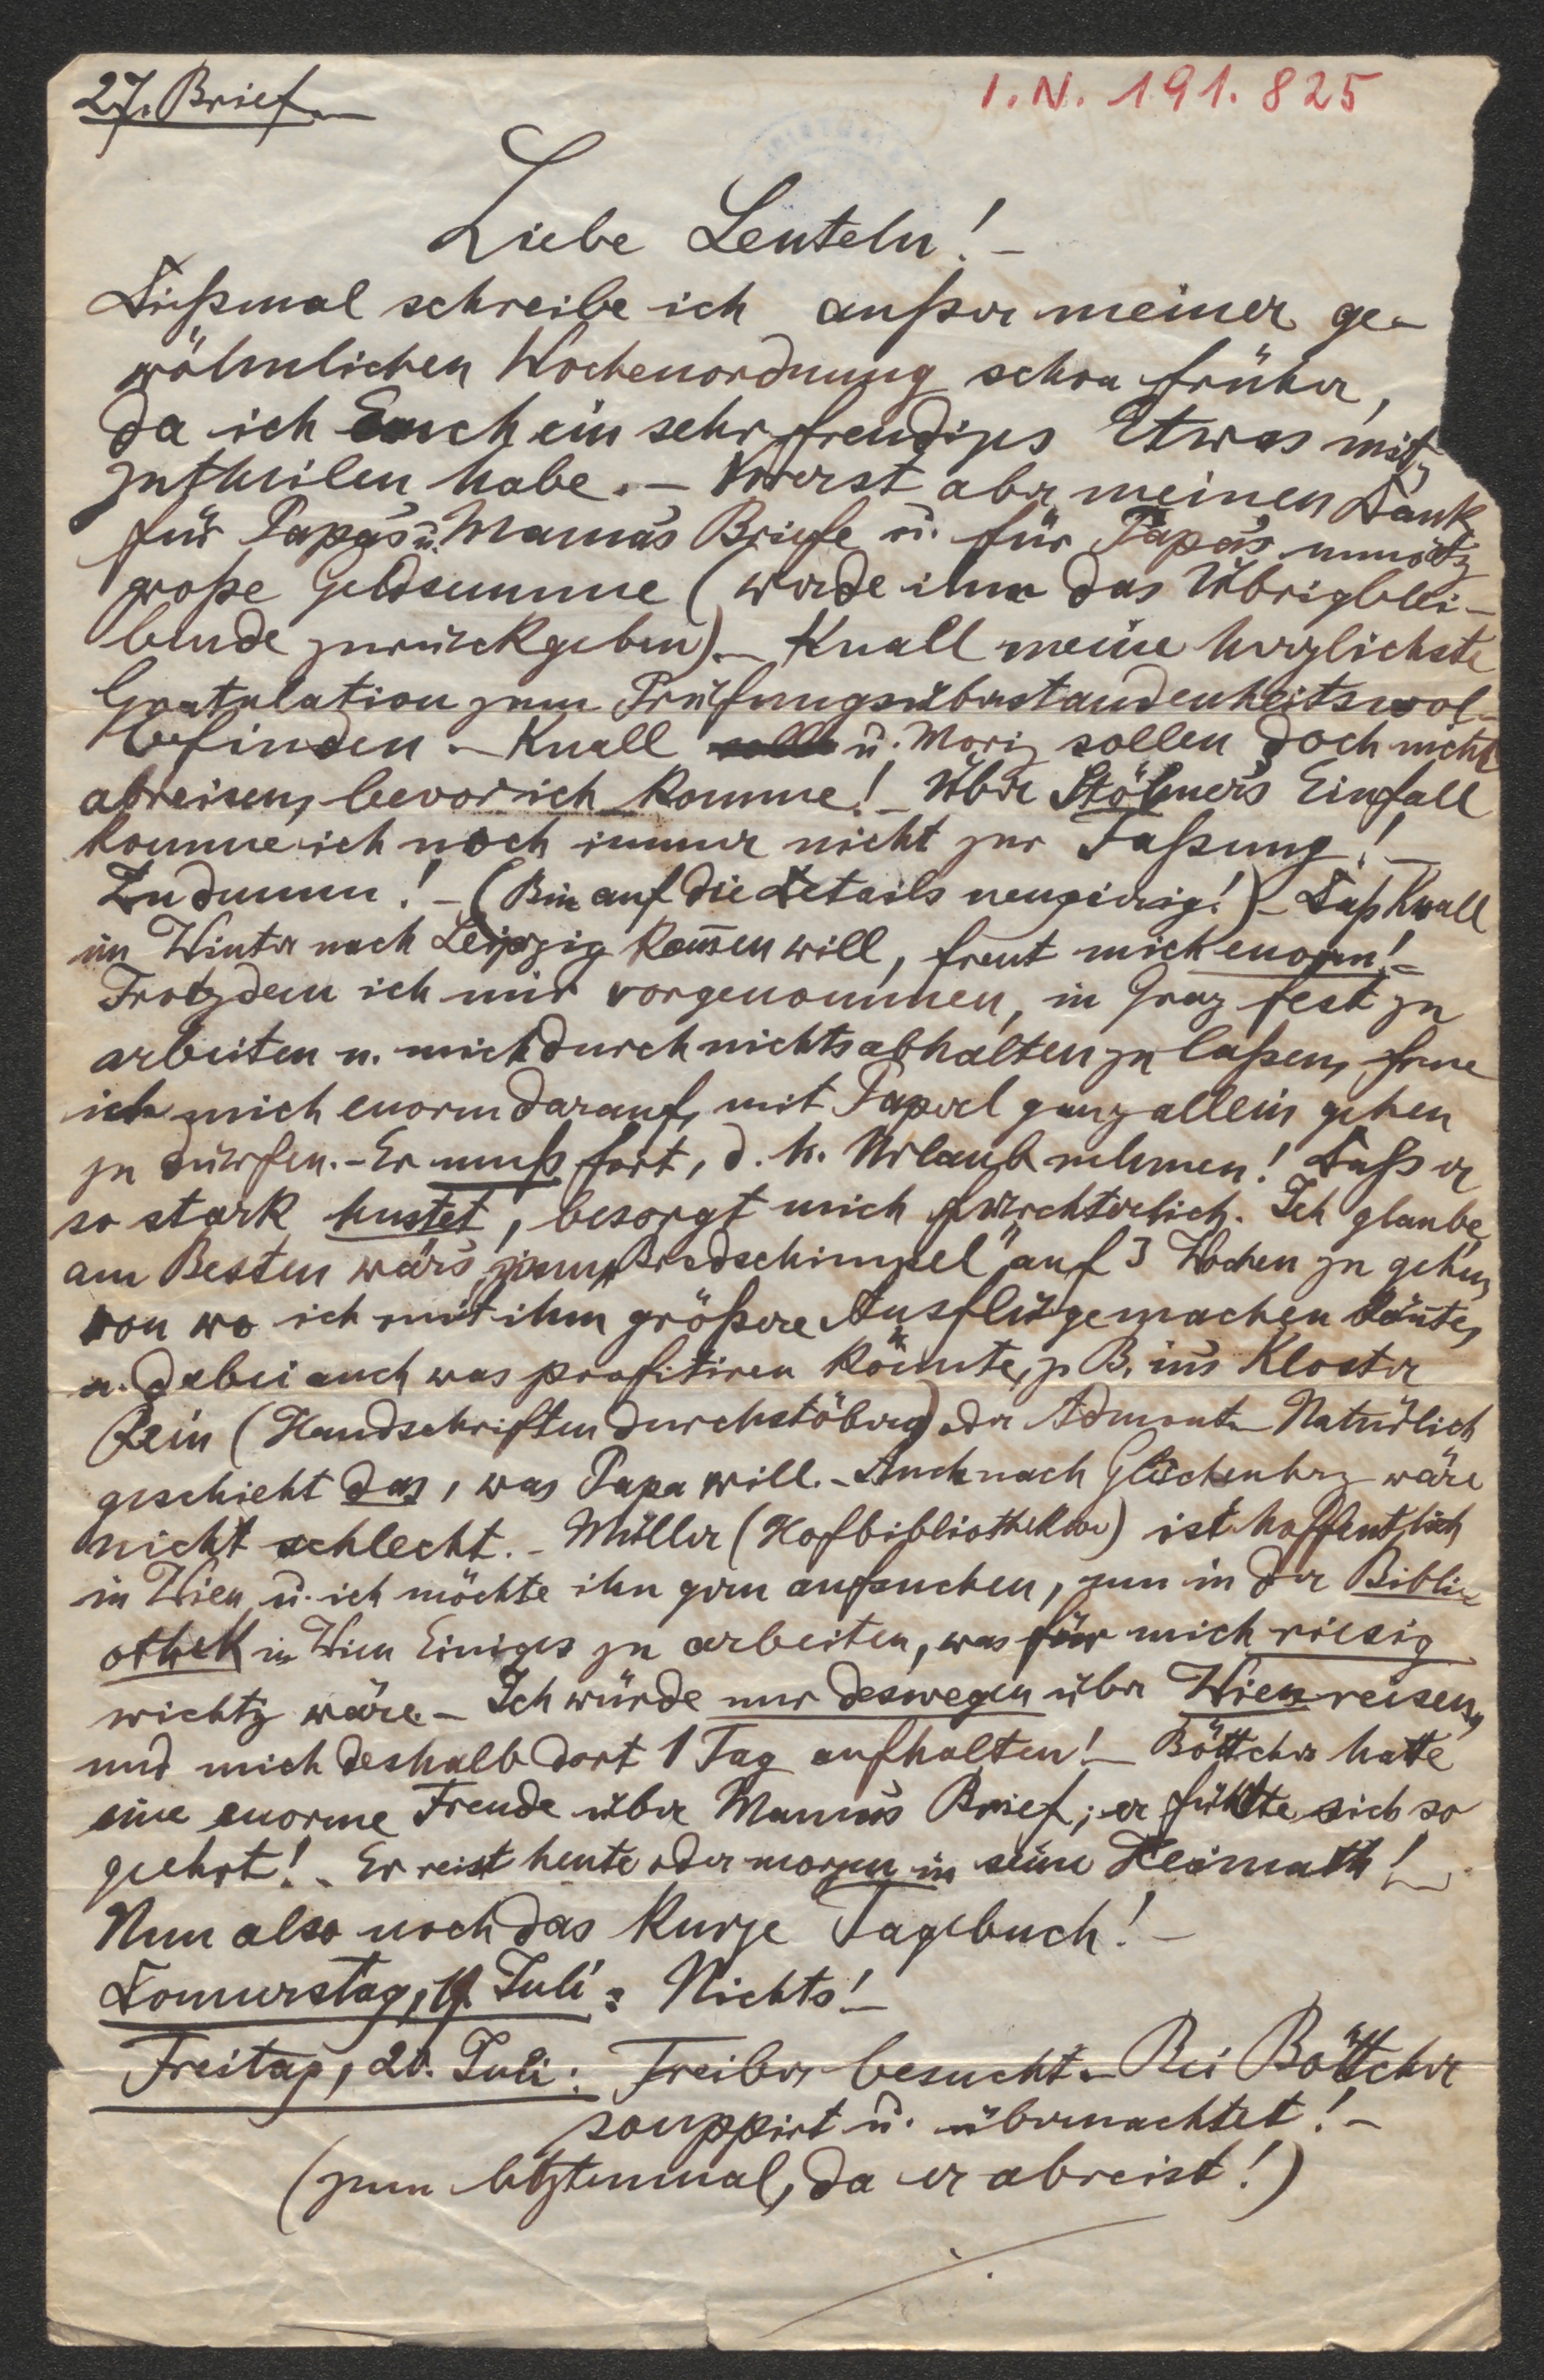 27. Brief.
I.N. 191.825
Liebe Leuteln! –
Dießmal schreibe ich außer meiner ge-
wöhnlichen Wochenordnung schon früher,
da ich Euch ein sehr freudiges Etwas mit-
zutheilen habe. – Vorerst aber meinen Dank
für Papa's u. Mama's Briefe u. für Papa's unnötig
große Geldsumme (werde ihm das Übrigblei-
bende zurückgeben). – Knall meine herzlichste
Gratulation zum Prüfungsüberstandenheitswol-
befinden. – Knall u. Moriz sollen doch nicht
abreisen, bevor ich komme! – Über Stöhner's Einfall
komme ich noch immer nicht zur Faßung! –
Zu dumm! – (Bin auf die Details neugierig!) – Daß Knall
im Winter nach Leipzig kom̅en will, freut mich enorm! –
Trotzdem ich mir vorgenommen, in Graz fest zu
arbeiten u. mich durch nichts abhalten zu laßen, freue
ich mich enorm darauf, mit Paperl ganz allein gehen
zu dürfen. – Er muß fort, d. h. Urlaub nehmen! Daß er
so stark hustet, besorgt mich fürchterlich. Ich glaube,
am Besten wär's, zum „Bredschimpel" auf 3 Wochen zu gehen,
von wo ich mit ihm größere Ausflüge machen kön̅te,
u. dabei auch was profitiren könnte, z. B. in's Kloster
Rein (Handschriften durchstöbern) oder Admont. – Natürlich
geschieht das, was Papa will. – Auch nach Gleichenbrg wäre
nicht schlecht. – Müller (Hofbibliothekar) ist hoffentlich
in Wien u. ich möchte ihn gern aufsuchen, um in der Bibli-
othek in Wien Einiges zu arbeiten, was für mich riesig
wichtig wäre. – Ich würde nur deswegen über Wien reisen,
und mich deshalb dort 1 Tag aufhalten! – Böttcher hatte
eine enorme Freude über Mama's Brief; er fühlte sich so
geehrt! – Er reist heute oder morgen in seine Heimath! –
Nun also noch das kurze Tagebuch! –
Donnerstag, 19. Juli: Nichts! –
Freitag, 20. Juli: Treiber besucht. – Bei Böttcher
souppirt u. übernachtet! –
(zum letztenmal, da er abreist!)